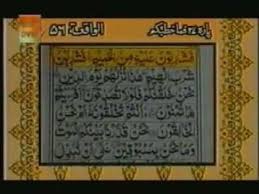 الواقعة ٥٦
فَشٰرِبُوْنَ عَلَيْهِ مِنَ الْحَمِيْمِ فَشٰرِبُوْنَ
شُرْبَ الْهِيْمِ هٰذَا نُزُلُهُمْ يَوْمَ الدِّيْنِ
نَحْنُ خَلَقْنٰكُمْ فَلَوْلَا تُصَدِّقُوْنَ اَفَرَءَيْتُمْ
مَّا تُمْنُوْنَ ءَاَنْتُمْ تَخْلُقُوْنَهٗٓ اَمْ نَحْنُ
الْخٰلِقُوْنَ نَحْنُ قَدَّرْنَا بَيْنَكُمُ الْمَوْتَ
وَمَا نَحْنُ بِمَسْبُوْقِيْنَ عَلٰٓى اَنْ نُّبَدِّلَ